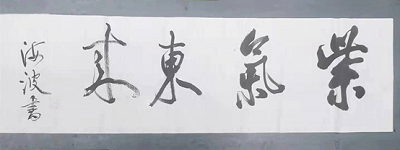 紫氣東來
海波書